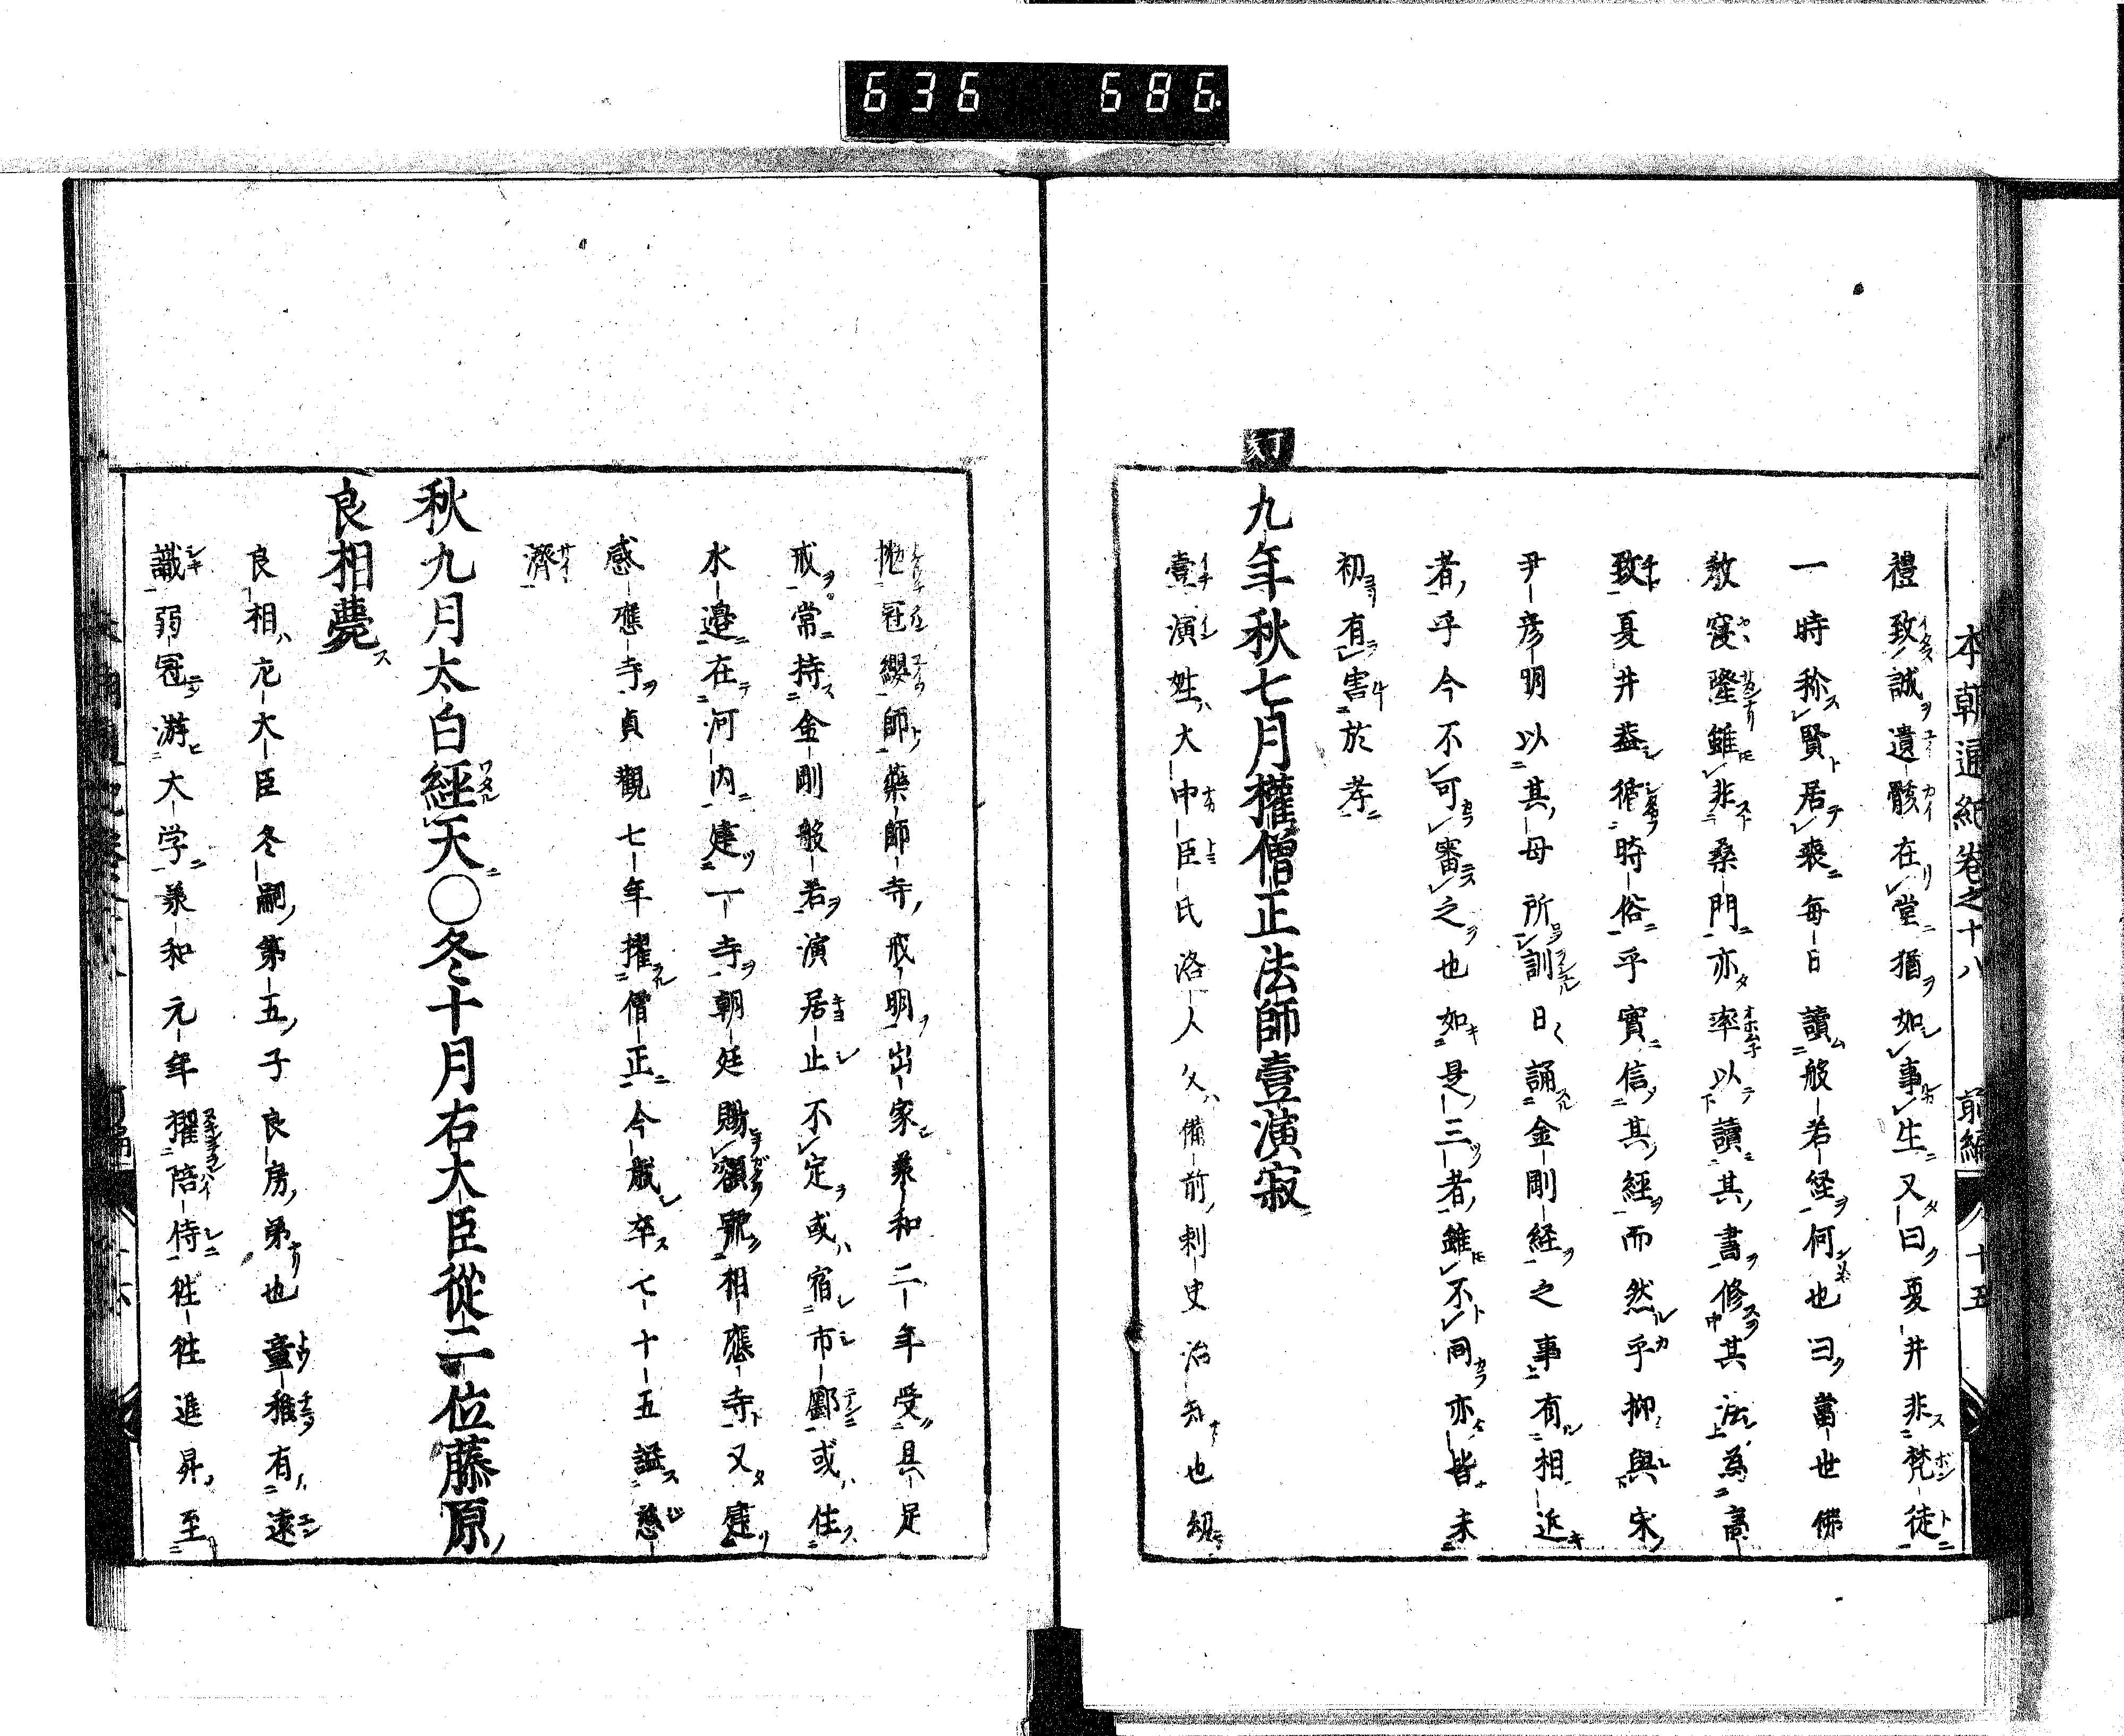 636 686
本朝通紀卷之十八 前編 十五
禮致誠遺骸在堂猶如事生又曰夏井非梵徒
一時称賢居喪每日讀般若経何也曰當世佛
敎寖隆雖非桑門亦率以讀其書修其法為高
致夏井蓋循時俗乎實信其經而然乎抑與宋
尹彦明以其母所訓日誦金剛経之事有相近
者乎今不可審之也如是三者雖不同亦皆未
初有害於孝
丁亥
九年秋七月權僧正法師壹演寂
壹演姓大中臣氏洛人父備前刺史治知也
冠纓師藥師寺戒明出家兼和二年受具足
戒常持金剛般若演居止不定或宿市鄽或住
水邉在河内建一寺朝廷賜額號相應寺又建
感應寺貞觀七年擢僧正今歳卒七十五諡慈
濟
秋九月太白經天〇冬十月右大臣從二位藤原
良相薨
良相左大臣冬嗣第五子良房弟也童稚有遠
識弱冠游大学兼和元年擢陪侍徃徃進昇至